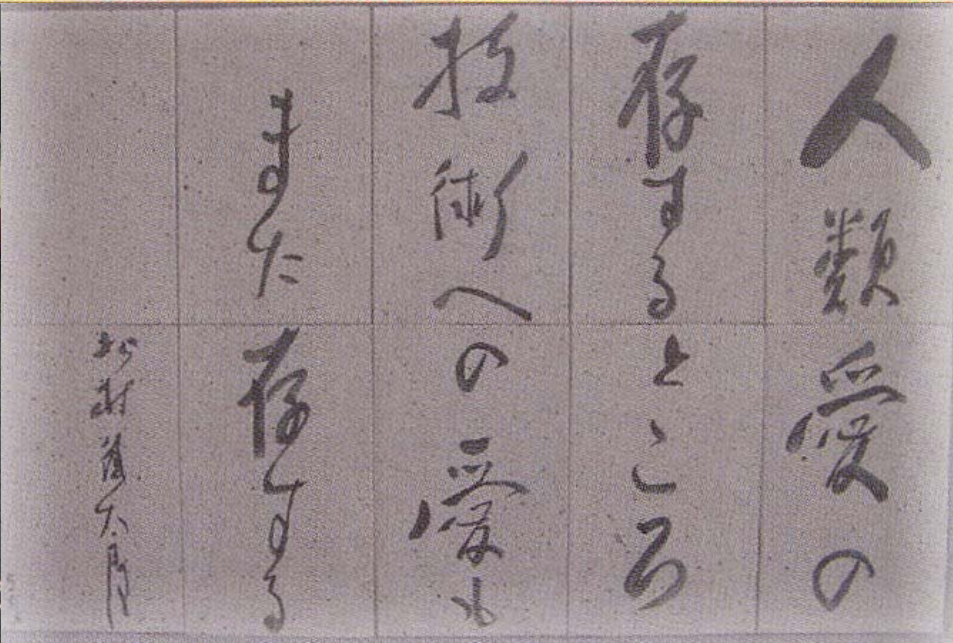 人類愛の
存するところ
技術への愛も
また存する